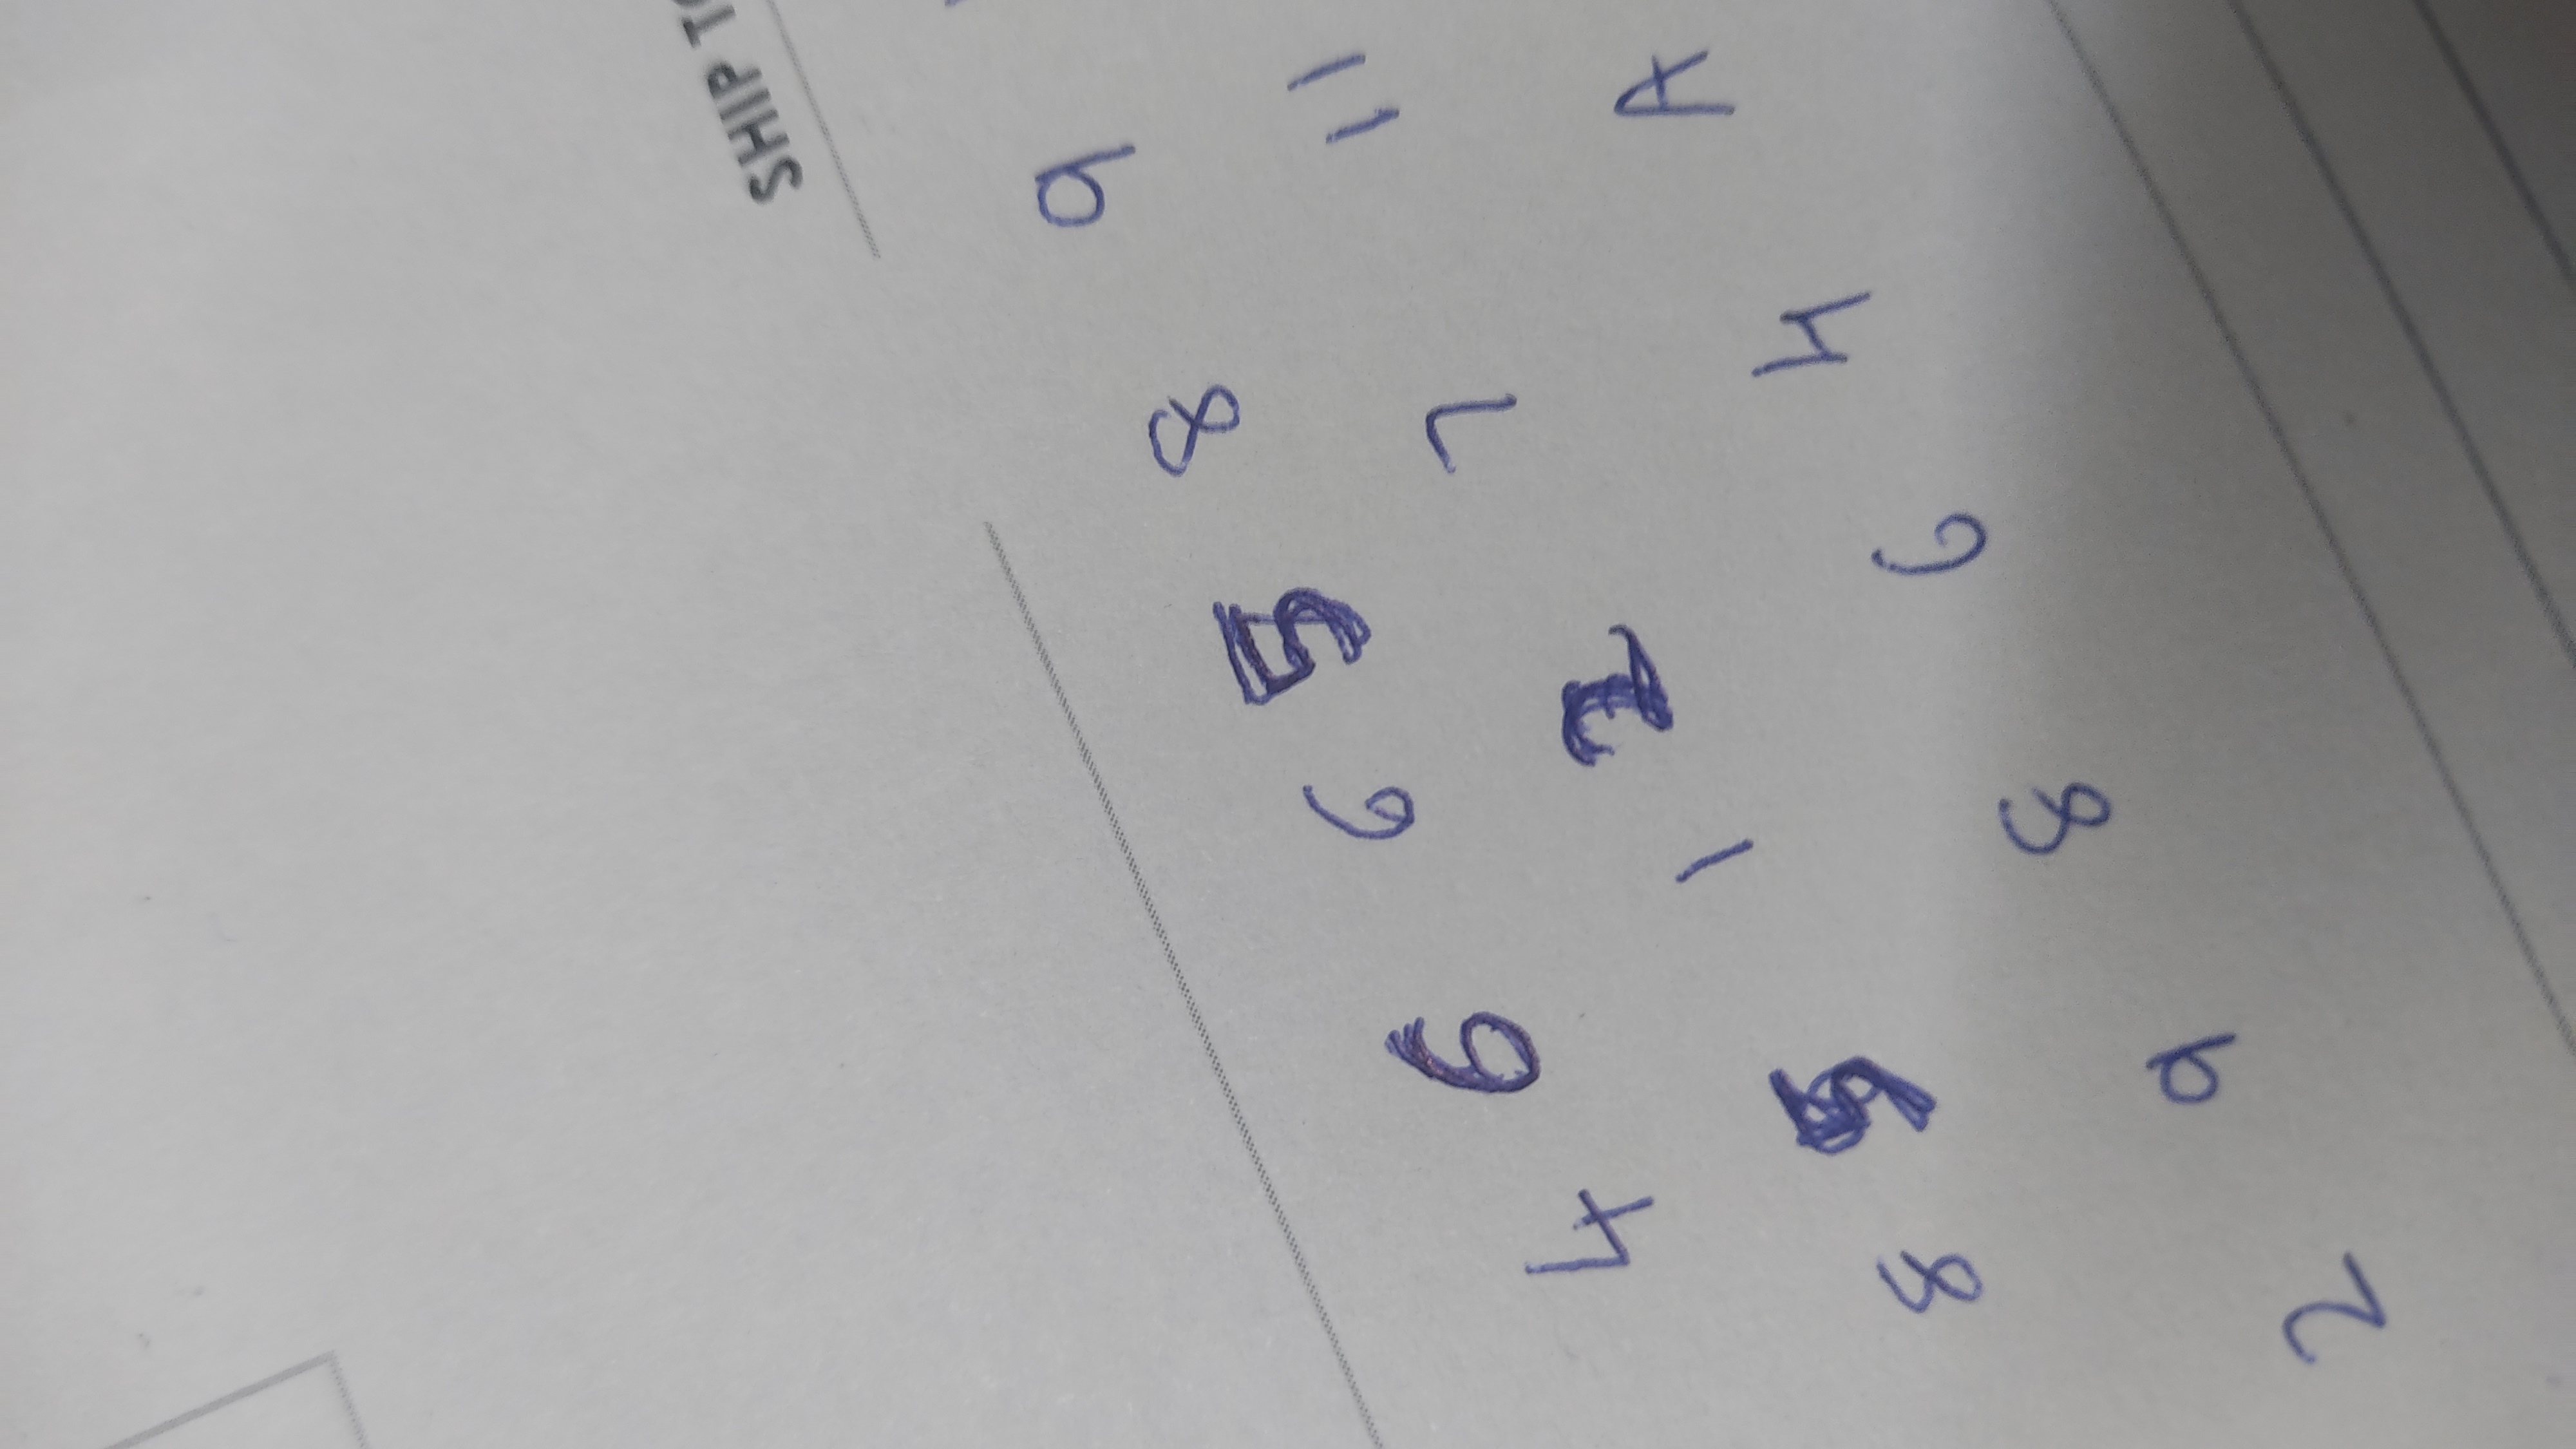 SHIP TO
4 6 6 5 8 9
8 5 1 2 7 11
2 9 8 6 4 A